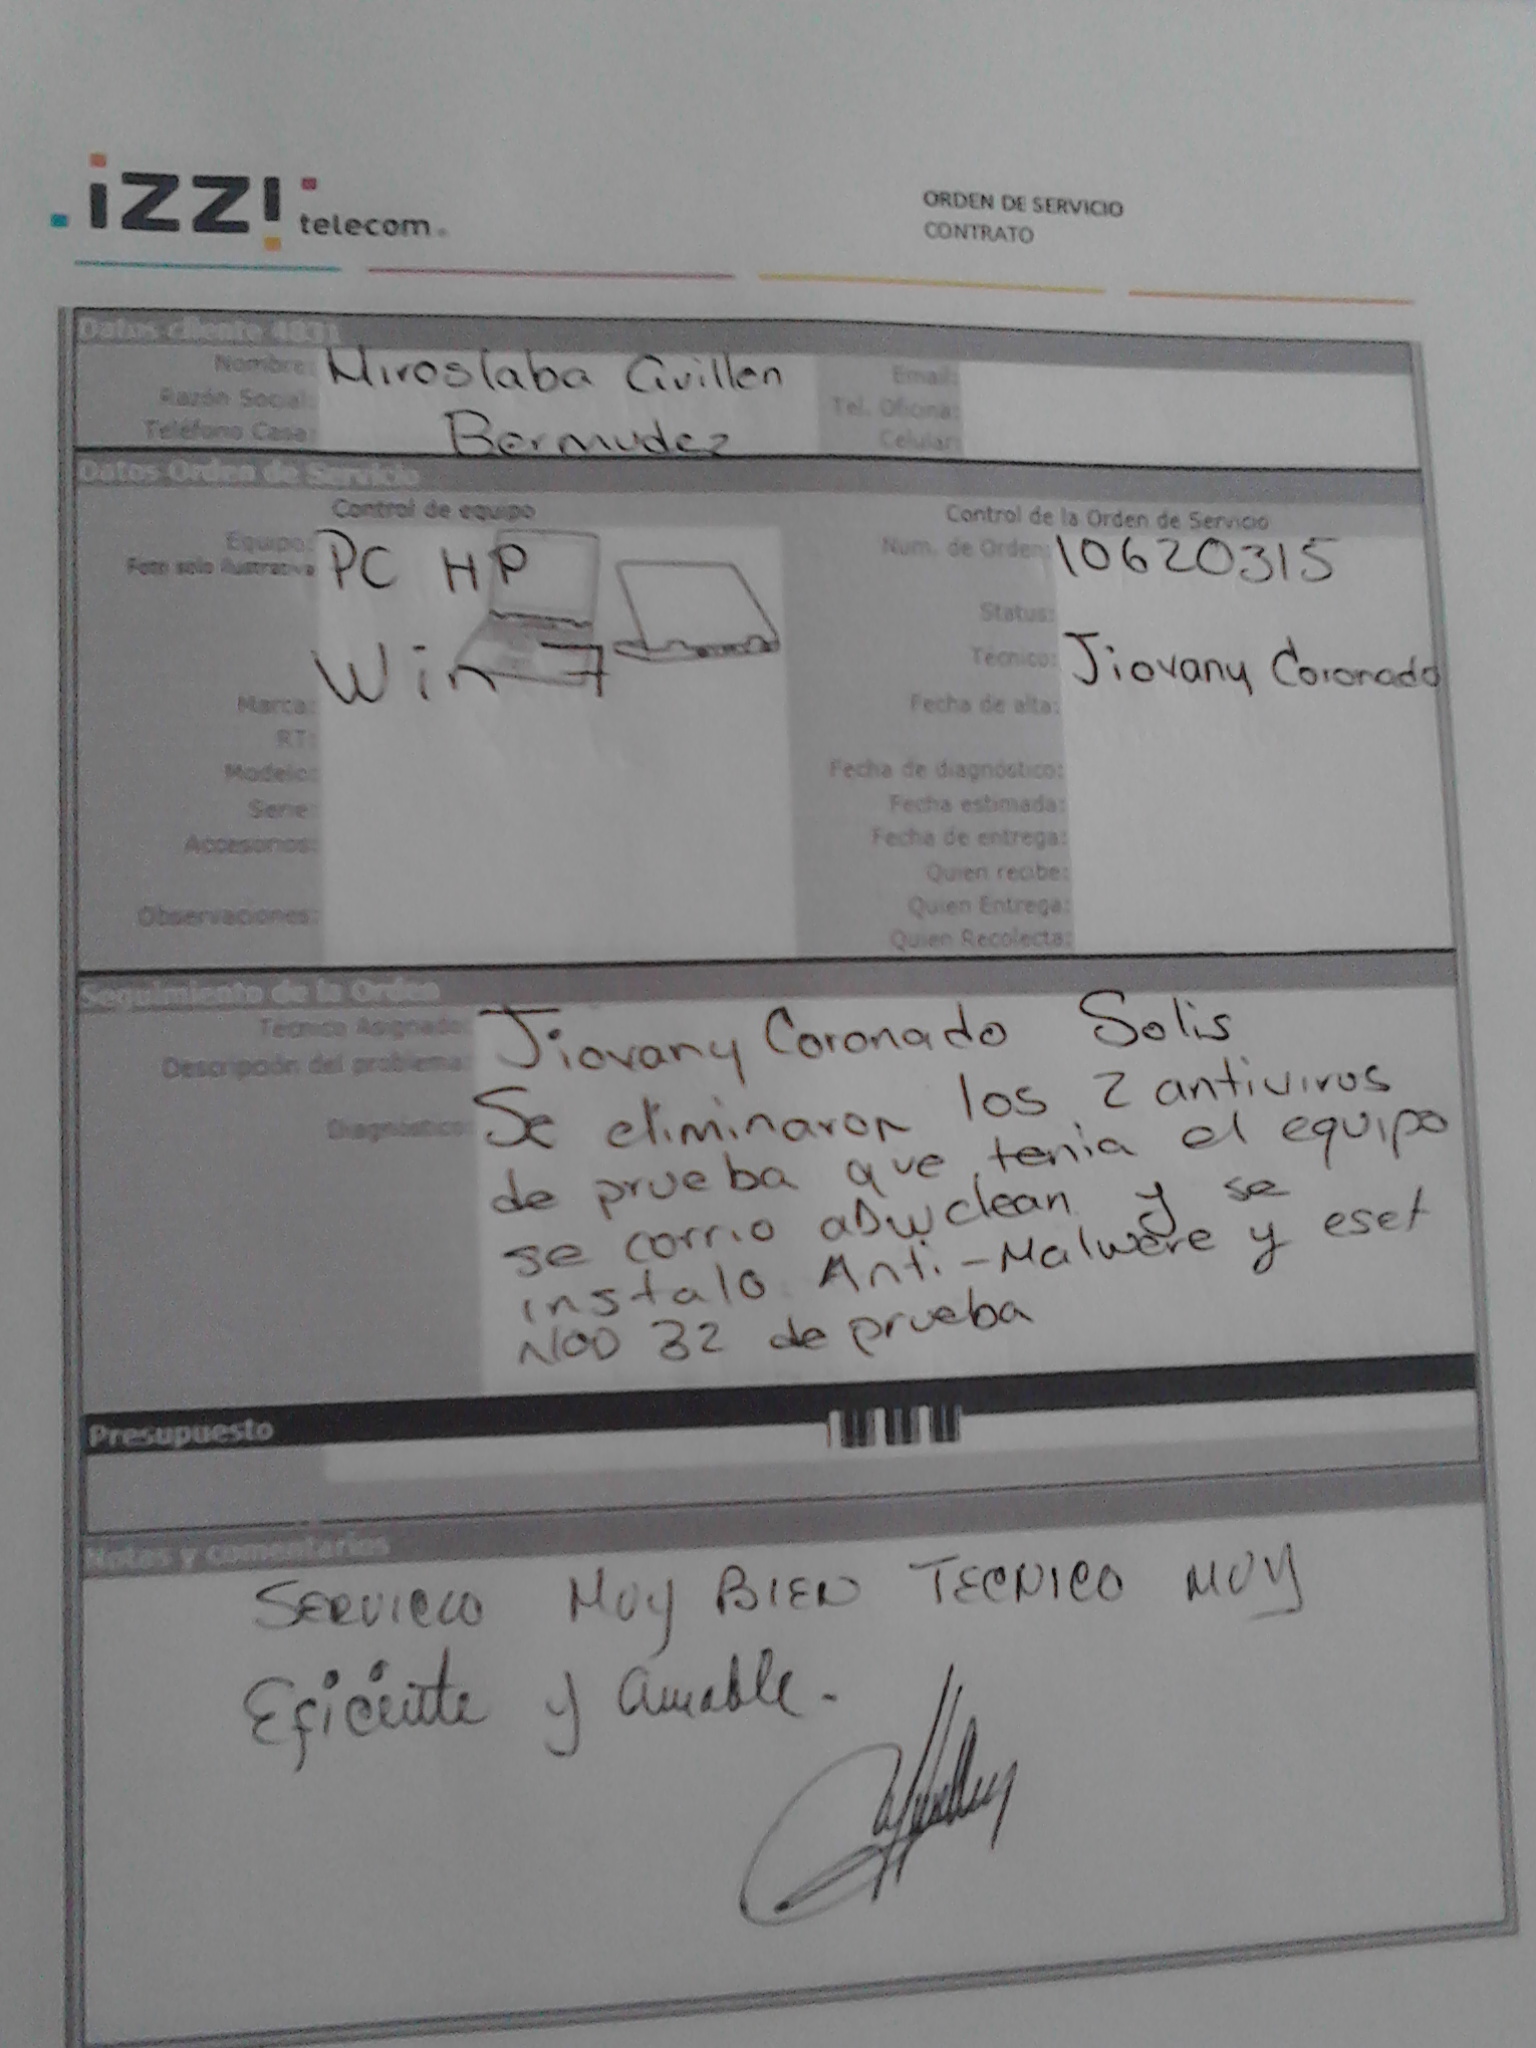 izzi telecom
ORDEN DE SERVICIO
CONTRATO
Datos cliente 4831
Nombre: Miroslaba Guillen
Razón Social:
Teléfono Casa: Bermudez
Email:
Tel. Oficina:
Celular:
Datos Orden de Servicio
Control de equipo
Equipo: PC HP
Foto solo ilustrativa
Win 7
Marca:
RT:
Modelo:
Serie:
Accesorios:
Observaciones:
Control de la Orden de Servicio
Num. de Orden: 10620315
Status:
Técnico: Jiovany Coronado
Fecha de alta:
Fecha de diagnóstico:
Fecha estimada:
Fecha de entrega:
Quien recibe:
Quien Entrega:
Quien Recolecta:
Seguimiento de la Orden
Técnico Asignado: Jiovany Coronado Solis
Descripción del problema:
Diagnóstico: Se eliminaron los 2 antivirus
de prueba que tenia el equipo
se corrio aDwclean y se
instalo Anti-Malwere y eset
NOD 32 de prueba
Presupuesto
Notas y comentarios
SERVICIO MUY BIEN TECNICO MUY
Eficiente y amable.